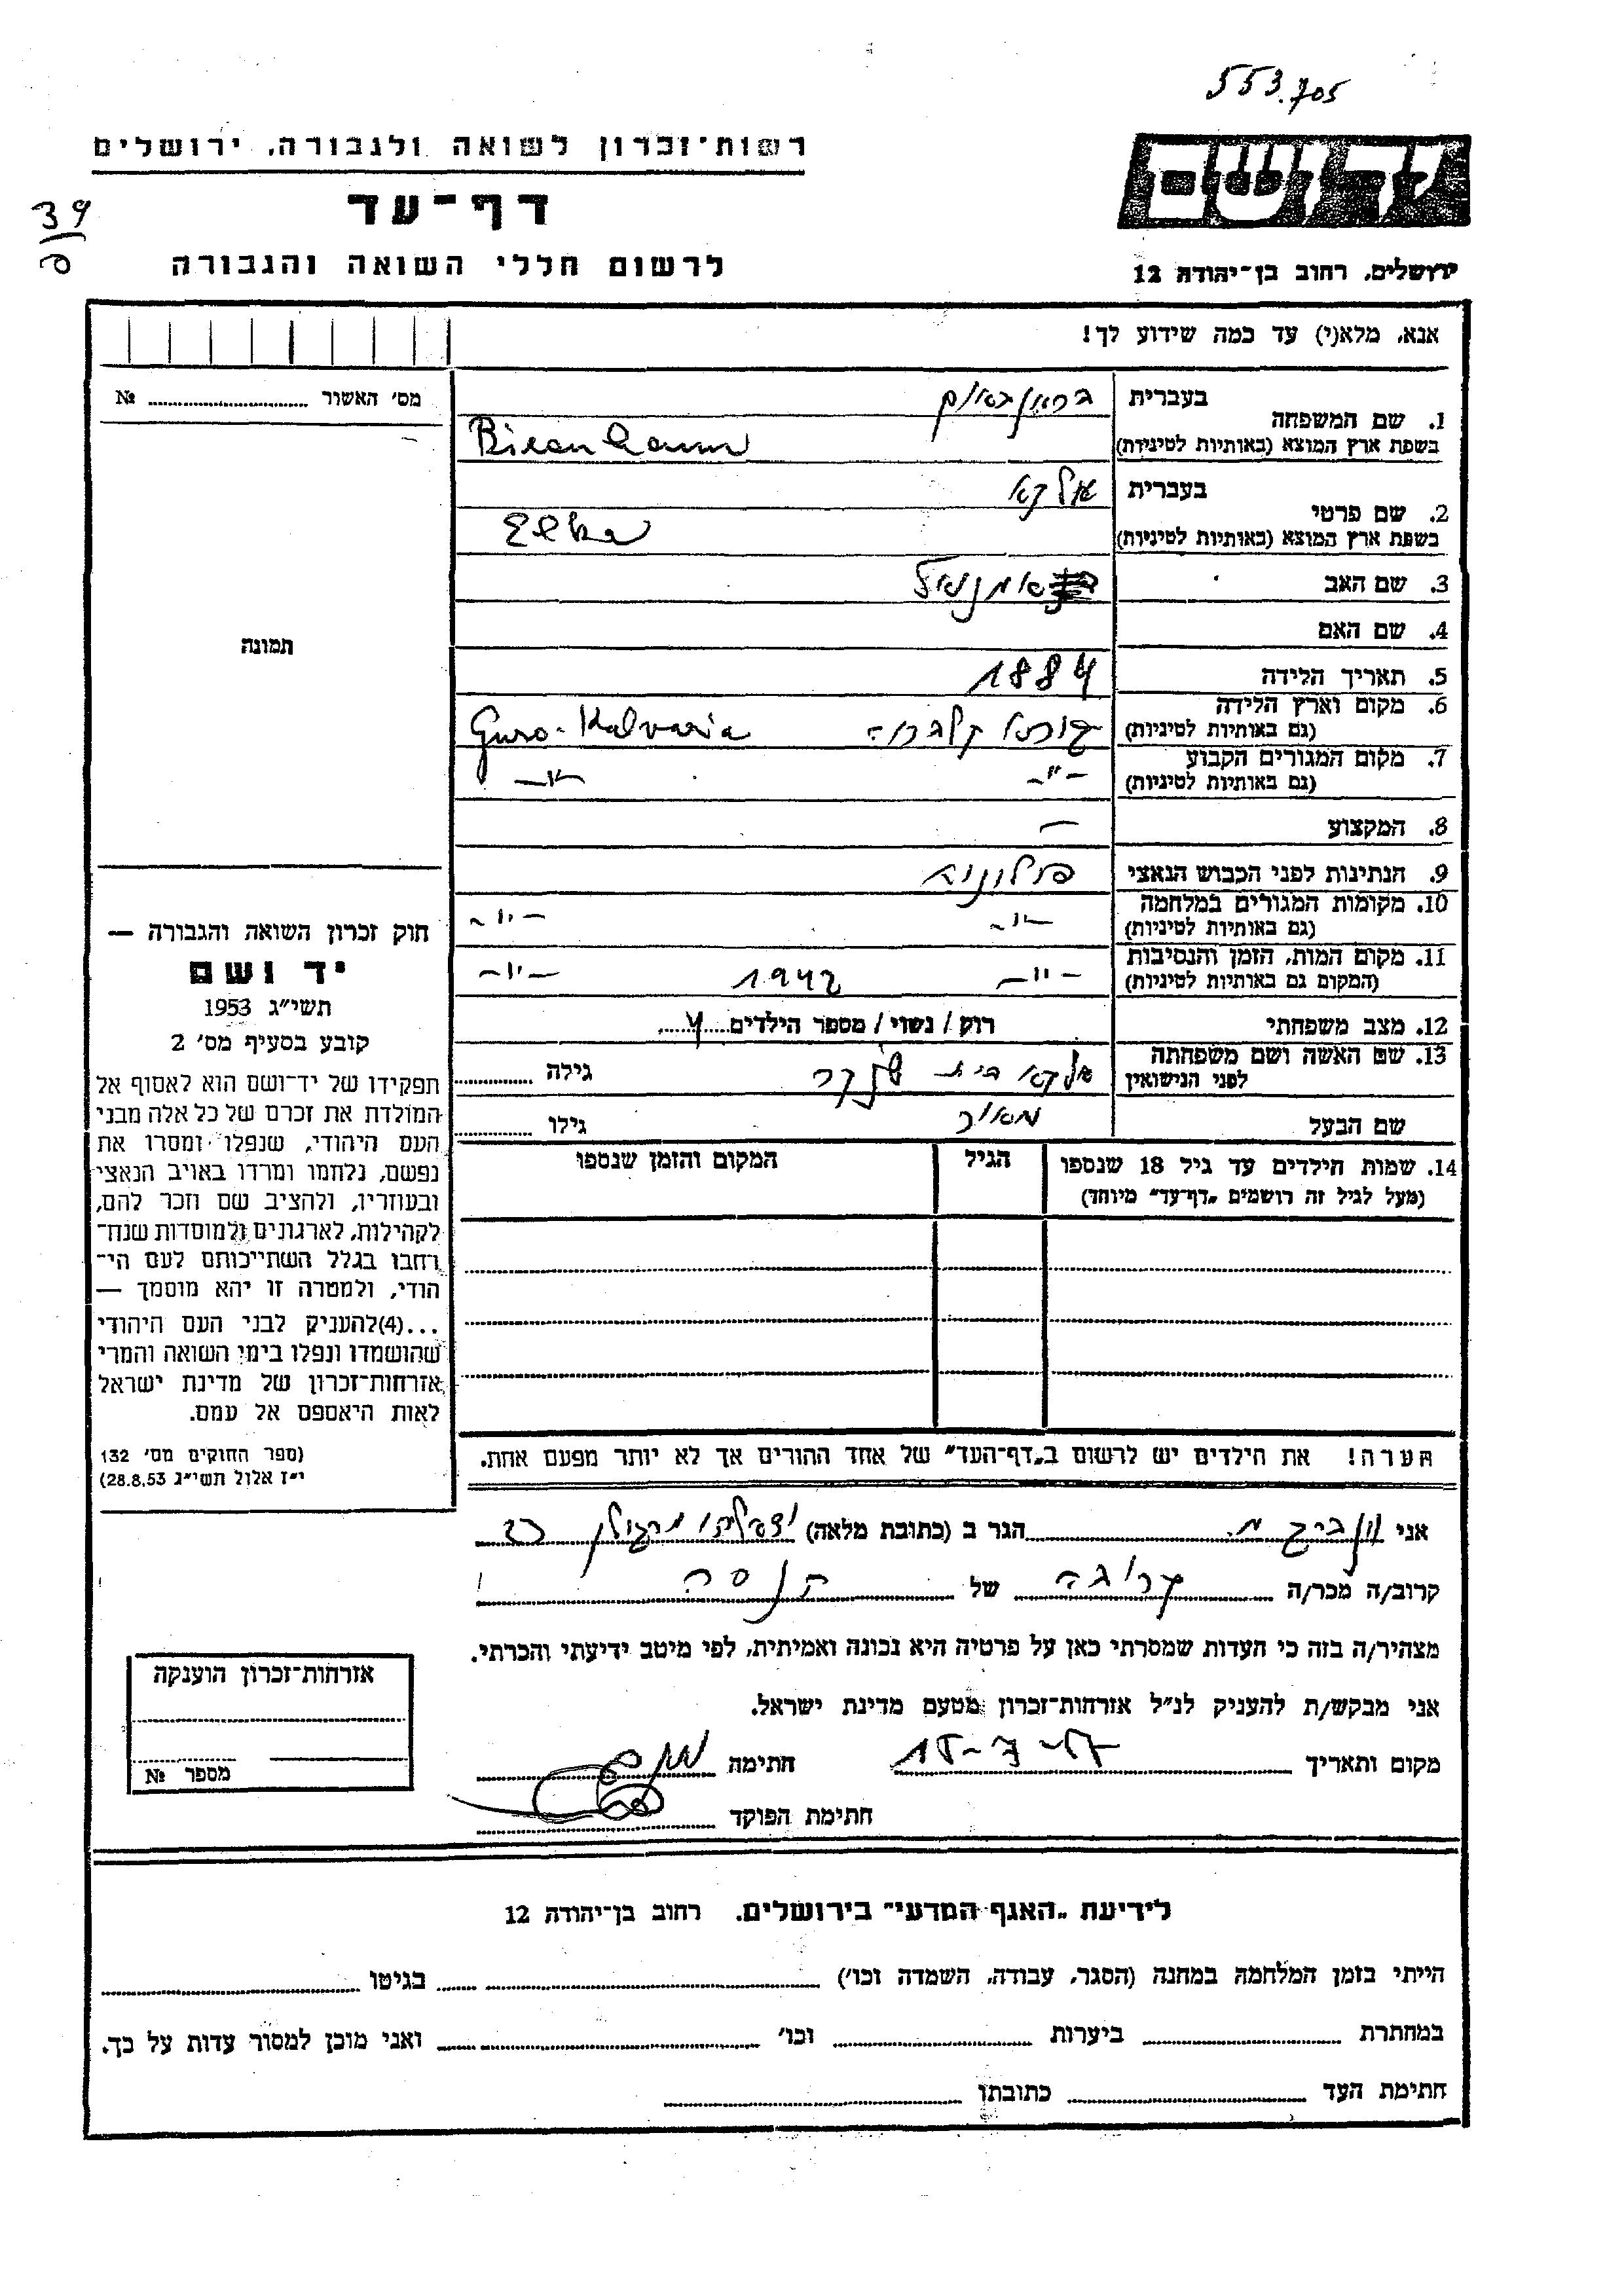 553.705
רשות־זכרון לשואה ולגבורה, ירושלים
יד ושם
דף־עד
39
לרשום חללי השואה והגבורה
ירושלים, רחוב בן־יהודה 12
אנא, מלא(י) עד כמה שידוע לך!
מס׳ האשור № 
1. שם המשפחה בעברית
בשפת ארץ המוצא (באותיות לטיניות)
2. שם פרטי בעברית אלקא
בשפת ארץ המוצא (באותיות לטיניות) Elka
3. שם האב עמנואל
4. שם האם
תמונה
5. תאריך הלידה 1884
6. מקום וארץ הלידה
(גם באותיות לטיניות) גורא קלבריה Guro-Kalvaria
7. מקום המגורים הקבוע
(גם באותיות לטיניות) -"- -"-
8. המקצוע —
9. הנתינות לפני הכבוש הנאצי פולונית
10. מקומות המגורים במלחמה
(גם באותיות לטיניות) -"- -"-
11. מקום המות, הזמן והנסיבות
(המקום גם באותיות לטיניות) -"- 1942 -"-
12. מצב משפחתי רוק / נשוי / מספר הילדים 4
13. שם האשה ושם משפחתה
לפני הנישואין אלקא בית גילה
שם הבעל מאיר גילו
14. שמות הילדים עד גיל 18 שנספו הגיל המקום והזמן שנספו
(מעל לגיל זה רושמים „דף־עד״ מיוחד)
חוק זכרון השואה והגבורה —
יד ושם
תשי״ג 1953
קובע בסעיף מס׳ 2
תפקידו של יד־ושם הוא לאסוף אל
המולדת את זכרם של כל אלה מבני
העם היהודי, שנפלו ומסרו את
נפשם, נלחמו ומרדו באויב הנאצי
ובעוזריו, ולהציב שם וזכר להם,
לקהילות, לארגונים ולמוסדות שנח־
רחבו בגלל השתייכותם לעם הי־
הודי, ולמטרה זו יהא מוסמך —
...(4)להעניק לבני העם היהודי
שהושמדו ונפלו בימי השואה והמרי
אזרחות־זכרון של מדינת ישראל
לאות היאספם אל עמם.
(ספר החוקים מס׳ 132
י״ז אלול תשי״ג 28.8.53)
הערה! את הילדים יש לרשום ב„דף־העד״ של אחד ההורים אך לא יותר מפעם אחת.
אני הגר ב (כתובת מלאה)
קרוב/ה מכר/ה קרובה של
מצהיר/ה בזה כי העדות שמסרתי כאן על פרטיה היא נכונה ואמיתית, לפי מיטב ידיעתי והכרתי.
אני מבקש/ת להעניק לנ״ל אזרחות־זכרון מטעם מדינת ישראל.
מקום ותאריך חתימה
חתימת הפוקד
אזרחות־זכרון הוענקה
מספר №
לידיעת „האגף המדעי״ בירושלים, רחוב בן־יהודה 12
הייתי בזמן המלחמה במחנה (הסגר, עבודה, השמדה וכו׳) בגיטו
במחתרת ביערות וכו׳ ואני מוכן למסור עדות על כך.
חתימת העד כתובתו